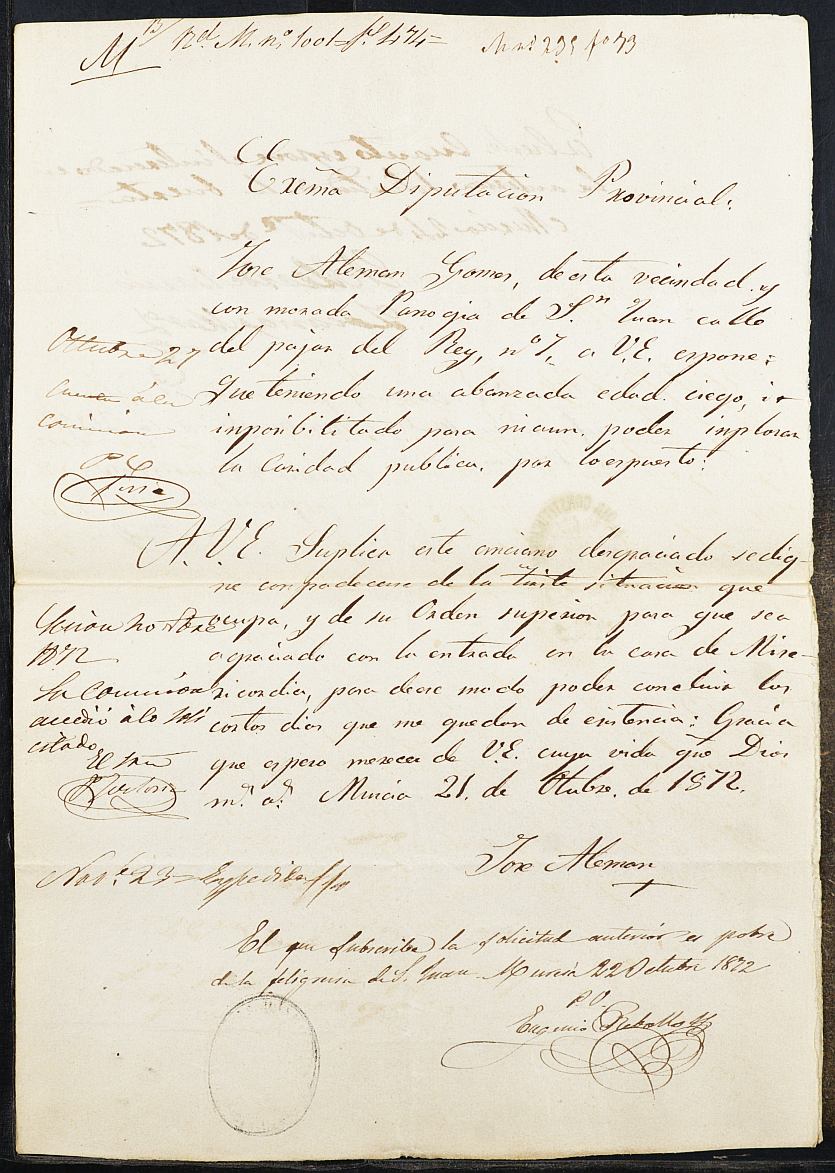 M
Rdº M. nº 1001 fº 474
M nº 235 fº 73
Exc̃ma Diputacion Provincial.
Jose Aleman Gomes, de esta vecindad y
con morada Paroqia de S.n Juan calle
del pajar del Rey, nº 7, a V.E. espone:
Que teniendo una abanzada edad. ciego, i
inposibilitado para nicaun. poder inplorar
la caridad publica. por lo espuesto:
Ottubre 27
á la
comision
P.
A. V.E. Suplica este anciano desgraciado se dig-
ne conpadecerse de la triste situacion que
ocupa, y de su Orden superior para que sea
agraciado con la entrada en la casa de Mise-
ricordia, para de ese modo poder concluir los
cortos dias que me quedan de esistencia: Gracia
que espera merecer de V.E. cuya vida gûe Dios
m.s a.s Murcia 21. de Otubre. de 1872.
Sesion
1872
La Comision
accedió á lo soli
citado
El
Jose Aleman
+
Nov.e 23 Espedida
El que subscribe la solicitud anterior es pobre
de la feligresia de S. Juan Murcia 22 Octubre 1872
P O
Eugenio Rebollo